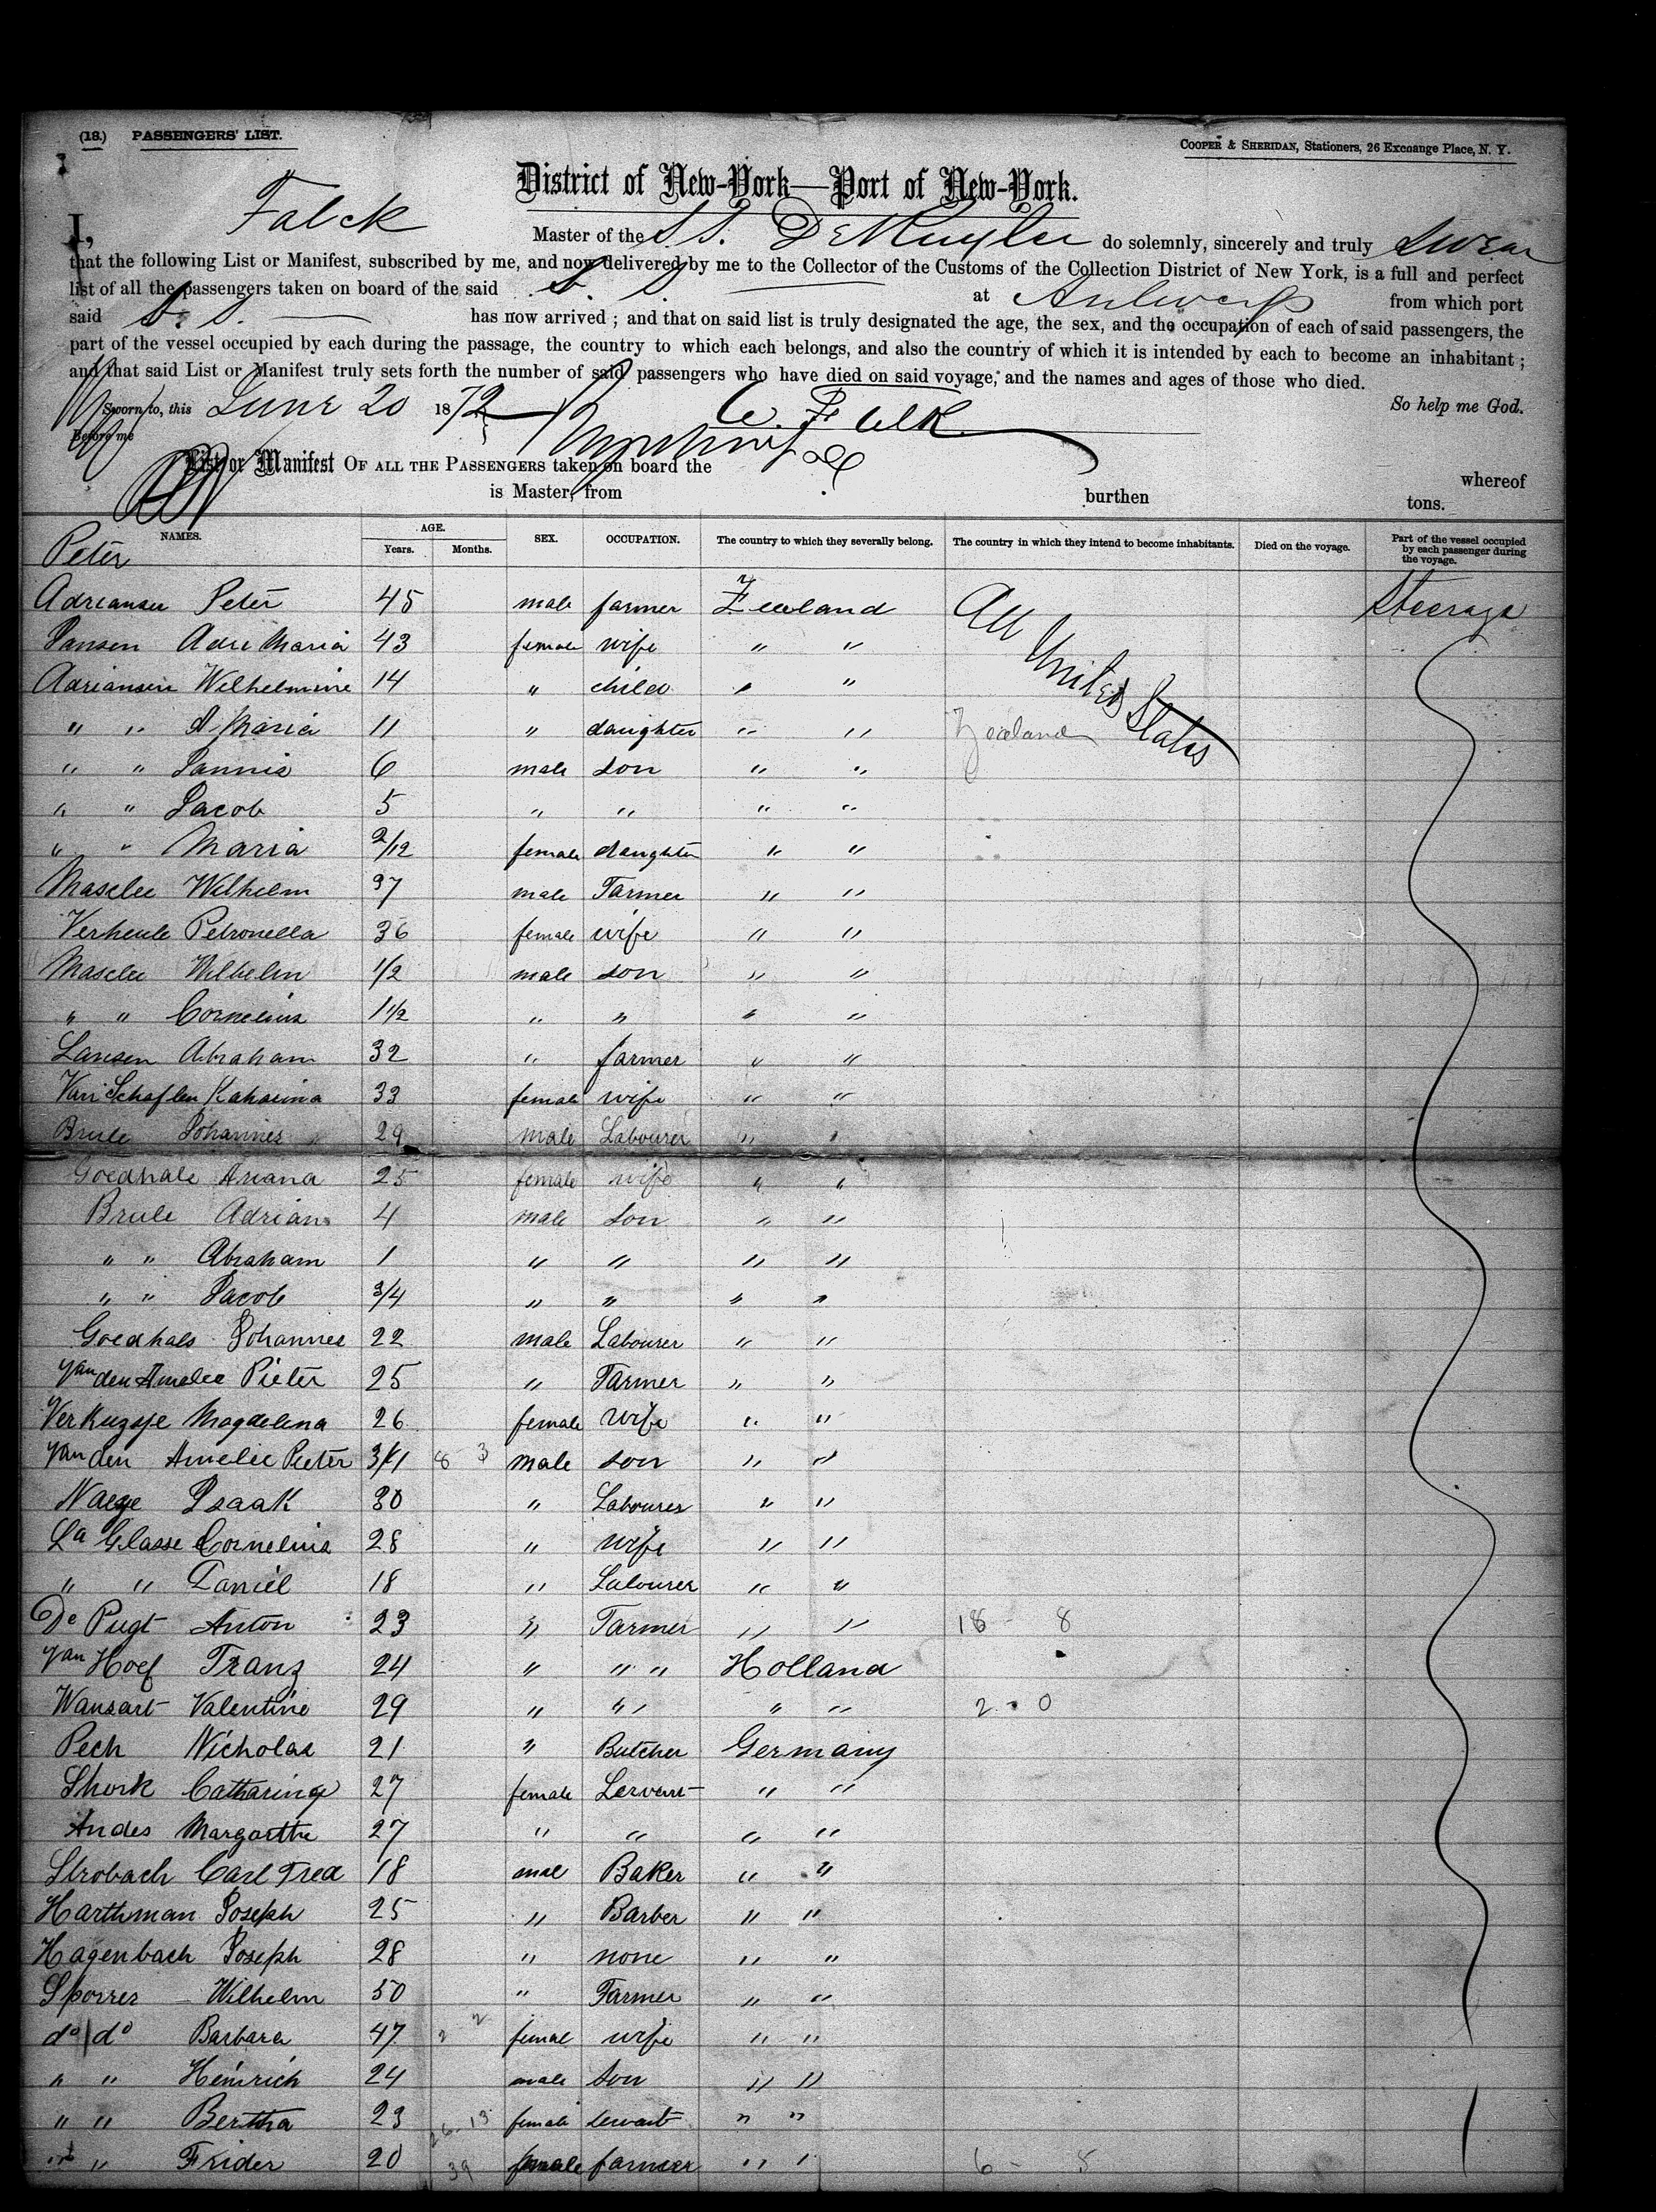 (18.) PASSENGERS' LIST.
COOPER & SHERIDAN, Stationers, 26 Exchange Place, N. Y.
District of New-York—Port of New-York.
I, Falck Master of the S.S. De Ruyter do solemnly, sincerely and truly swear
that the following List or Manifest, subscribed by me, and now delivered by me to the Collector of the Customs of the Collection District of New York, is a full and perfect
list of all the passengers taken on board of the said S. S. at Antwerp from which port
said S. S. has now arrived ; and that on said list is truly designated the age, the sex, and the occupation of each of said passengers, the
part of the vessel occupied by each during the passage, the country to which each belongs, and also the country of which it is intended by each to become an inhabitant ;
and that said List or Manifest truly sets forth the number of said passengers who have died on said voyage, and the names and ages of those who died.
Sworn to, this June 20 1872 So help me God.
Before me
List or Manifest OF ALL THE PASSENGERS taken on board the whereof
is Master, from burthen tons.
NAMES. AGE. Years. Months. SEX. OCCUPATION. The country to which they severally belong. The country in which they intend to become inhabitants. Died on the voyage. Part of the vessel occupied by each passenger during the voyage.
Peter
Peter 45 male farmer Zeeland All United States Steerage
Jansen Maria 43 female wife " "
Adriansen Wilhelmine 14 " child " "
" " A Maria 11 " daughter " " Zeeland
" " Jannis 6 male son " "
" " Jacob 5 " " " "
" " Maria 2/12 female daughter " "
Masclee Wilhelm 37 male Farmer " "
Verheule Petronella 36 female wife " "
Masclee Wilhelm 1/2 male son " "
" " Cornelius 1 1/2 " " " "
Lansen Abraham 32 " farmer " "
Van 33 female wife " "
Brule Johannes 29 male Labourer " "
Goedhale Ariana 25 female wife " "
Brule Adrian 4 male son " "
" " Abraham 1 " " " "
" " Jacob 3/4 " " " "
Goedhals Johannes 22 male Labourer " "
Van den Amelee Pieter 25 " Farmer " "
Magdelena 26 female wife " "
Van den Amelie Pieter 3/4 8 3 male son " "
Naeye Isaak 30 " Labourer " "
La Glasse Cornelius 28 " wife " "
" " Daniel 18 " Labourer " "
De Pugt Anton 23 " Farmer " " 18 - 8
Van Hoef Franz 24 " " " Holland
Wansart Valentine 29 " " " " 2 - 0
Pech Nicholas 21 " Butcher Germany
Shork Catharina 27 female Servant " "
Andes Margarthe 27 " " " "
Strobach Carl Fred 18 mal Baker " "
Harthman Joseph 25 " Barber " "
Hagenbach Joseph 28 " none " "
Sporrer Wilhelm 50 " Farmer " "
do do Barbara 47 2 2 femal wife " "
" " Heinrich 24 male son " "
" " Bertha 23 26-13 female " "
" " Frider 20 39 female farmer " " 6 - 5